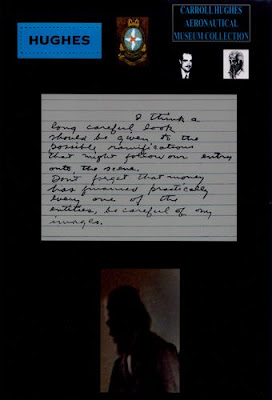 HUGHES
CARROLL HUGHES
AERONAUTICAL
MUSEUM COLLECTION
I think a
long careful look
should be given to the
possible ramifications
that might follow our entry
onto the scene.
Don't forget that money
has financed practically
every one of the
entities, be careful of my
images.